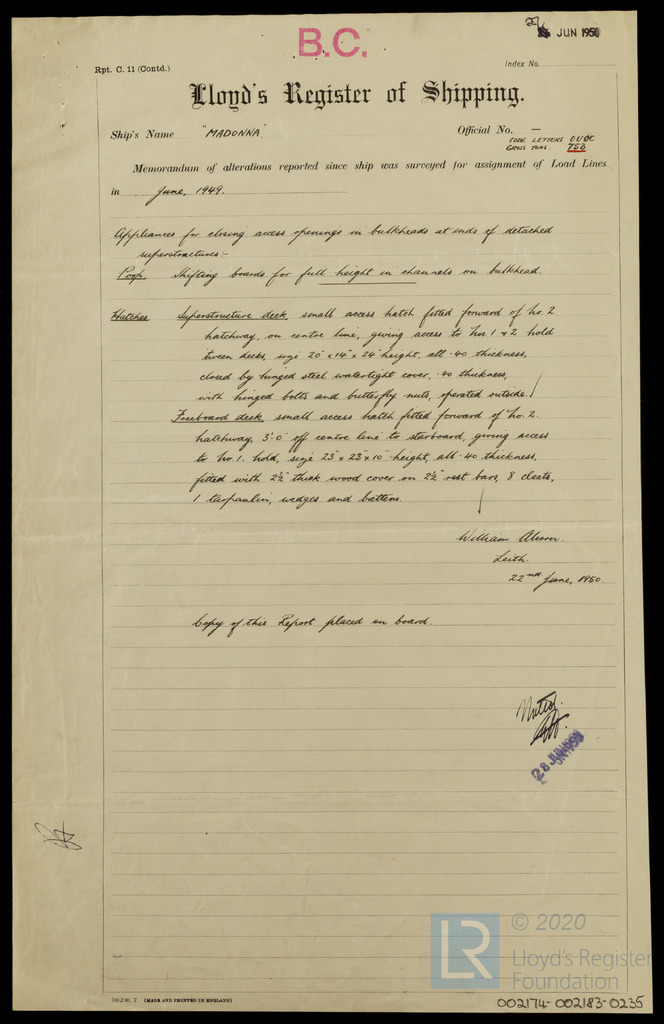 JUN 1950
B.C.
Rpt. C. 11 (Contd.)
Index No.
Lloyd's Register of Shipping.
Ship's Name "MADONNA" Official No. —
CODE LETTERS OUOC
GROSS TONS. 753
Memorandum of alterations reported since ship was surveyed for assignment of Load Lines
in June, 1949.
Appliances for closing access openings in bulkheads at ends of detached
superstructures:-
Poop. Shifting boards for full height in channels on bulkhead.
Hatches Superstructure deck, small access hatch fitted forward of No. 2
hatchway, on centre line, giving access to Nos 1 & 2 hold
tween decks, size 20" x 14" x 24" height, all .40 thickness,
closed by hinged steel watertight cover, .40 thickness,
with hinged bolts and butterfly nuts, operated outside.
Freeboard deck, small access hatch fitted forward of No. 2.
hatchway, 3'-0" off centre line to starboard, giving access
to No. 1. hold, size 23" x 23" x 10" height, all .40 thickness,
fitted with 2½" thick wood cover on 2½" rest bars, 8 cleats,
1 tarpaulin, wedges and battens.
William Alcorn.
Leith.
22nd June, 1950.
Copy of this Report placed on board.
Noted.
28 JUN 1950
(MADE AND PRINTED IN ENGLAND)
LR © 2020
Lloyd's Register
Foundation
002174-002183-0235